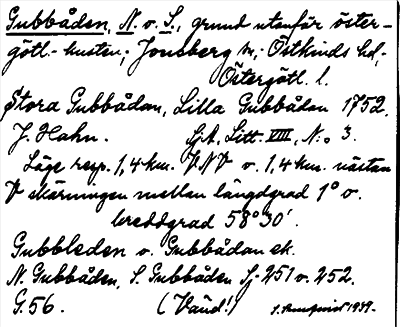 Gubbbåden, N. o. S., grund utanför öster-
götl. kusten; Jonsberg sn, Östkinds hd,
Östergötl. l.
Stora Gubbådan, Lilla Gubbådan 1752.
J. Hahn. SjA, Litt. VIII, N:o 3.
Läge resp. 1,4 km. VNV o. 1,4 km. nästan
V skärningen mellan längdgrad 1° o.
breddgrad 58°30′.
Gubbleden o. Gubbådan ek.
N. Gubbåden, S. Gubbåden Sj 251 o. 252.
G. 56. (Vänd!) 1939.